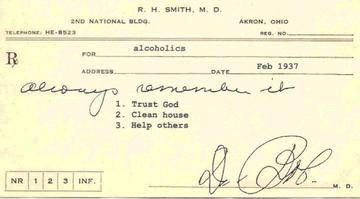 R. H. SMITH, M. D.
2ND NATIONAL BLDG. AKRON, OHIO
TELEPHONE: HE-8523 REG. NO.
℞ FOR alcoholics
ADDRESS DATE Feb 1937
always remember it
1. Trust God
2. Clean house
3. Help others
Dr. Bob. M. D.
NR 1 2 3 INF.